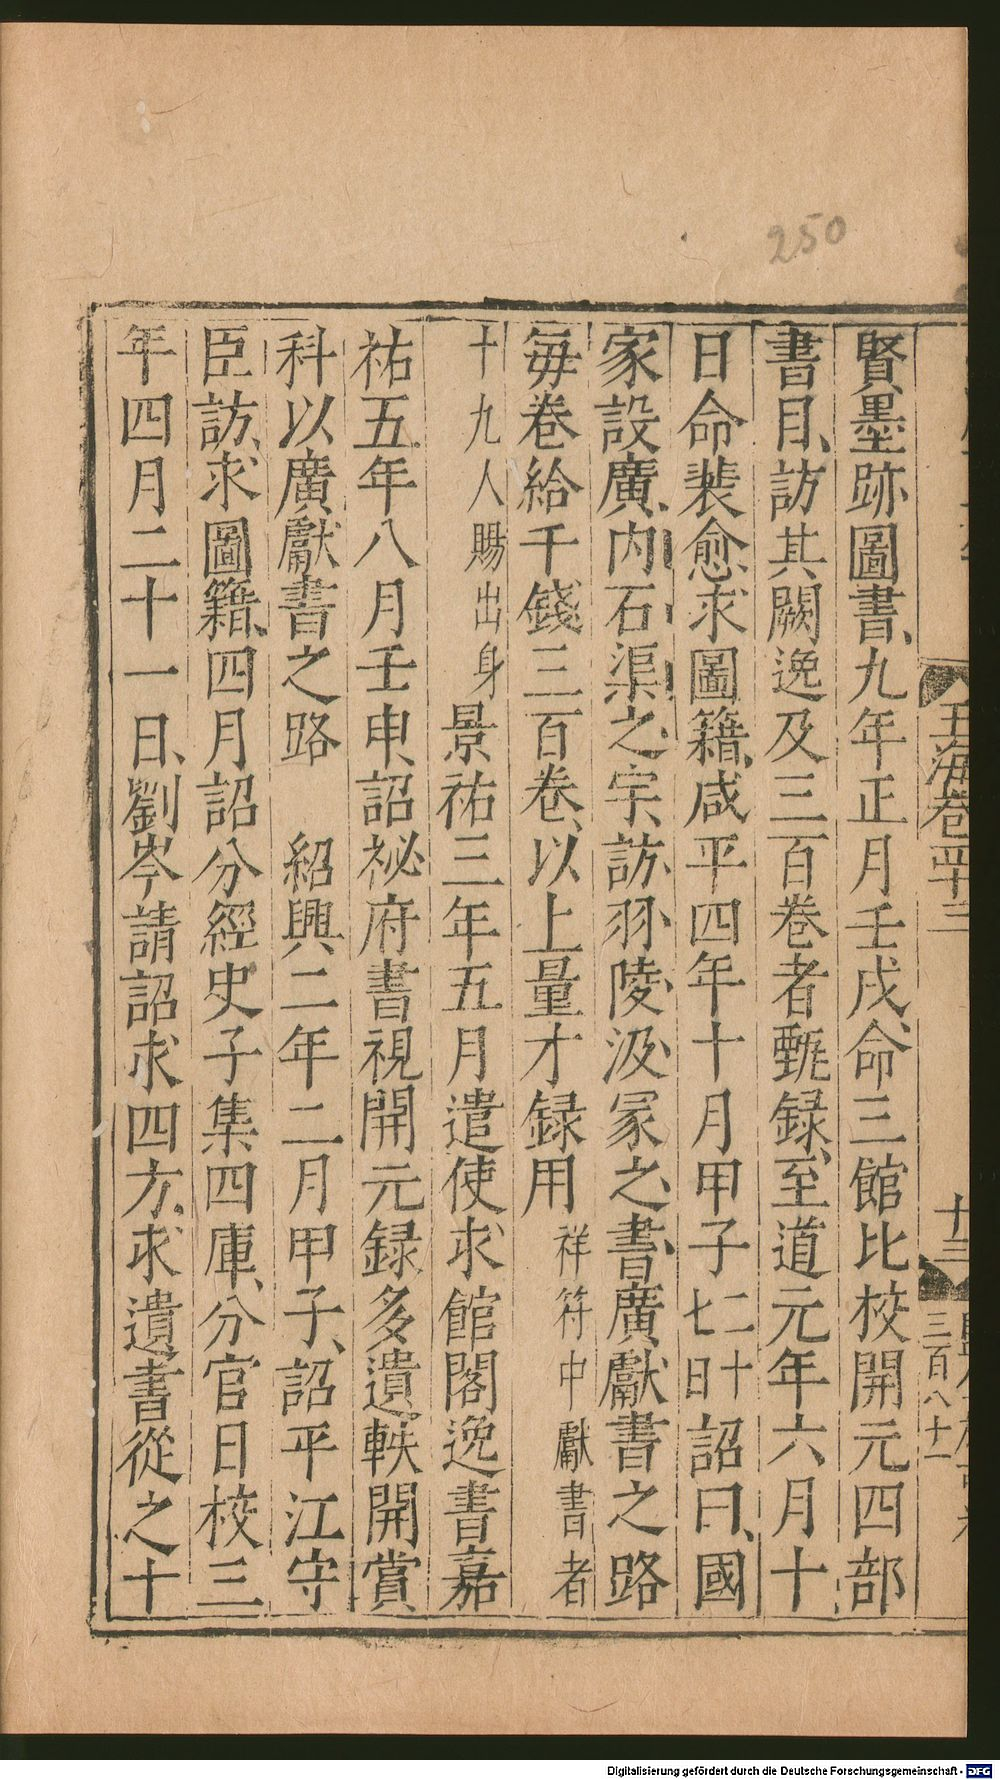 250
賢墨跡圖書、九年正月壬戌、命三館比校開元四部
書目、訪其闕逸及三百卷者甄録、至道元年六月十
日命裴愈求圖籍、咸平四年十月甲子二十七日詔曰、國
家設廣內石渠之宇、訪羽陵汲冢之書、廣獻書之路
每卷給千錢三百卷、以上量才録用祥符中獻書者
十九人賜出身景祐三年五月遣使求館閣逸書嘉
祐五年八月壬申、詔祕府書視開元録多遺軼開賞
科以廣獻書之路　紹興二年二月甲子、詔平江守
臣訪求圖籍、四月詔分經史子集四庫、分官日校三
年四月二十一日、劉岑請詔求四方、求遺書從之十
玉海卷五十二
十三
三百八十一
Digitalisierung gefördert durch die Deutsche Forschungsgemeinschaft - DFG